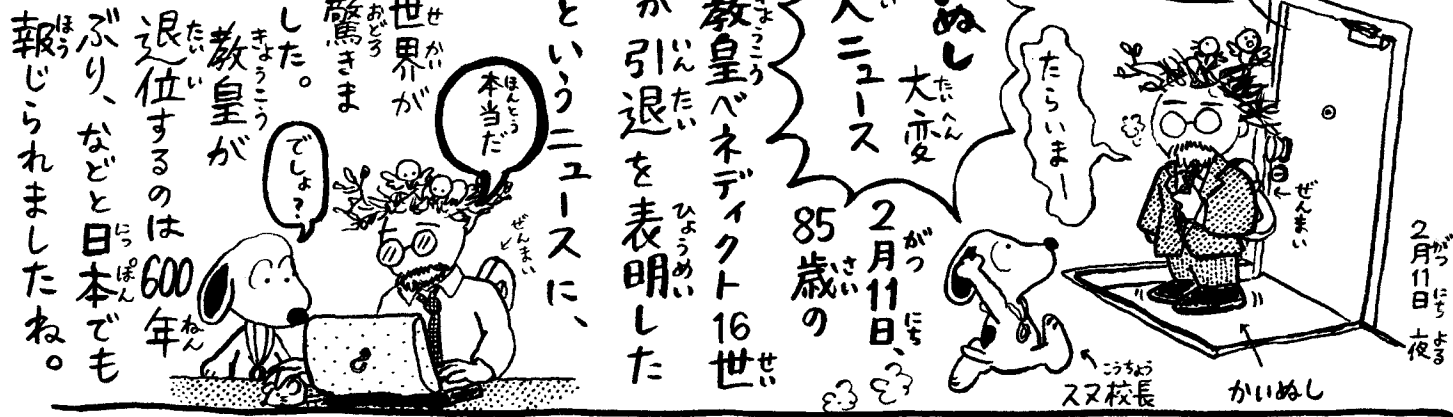 2月11日 夜
ぜんまい
かいぬし
たらいまー
スヌ校長
ぬし
大変
ニュース
2月11日、
85歳の
教皇ベネディクト16世
が引退を表明した
というニュースに、
世界が
驚きま
した。
教皇が
退位するのは600年
ぶり、などと日本でも
報じられましたね。
本当だ
ぜんまい
でしょ？